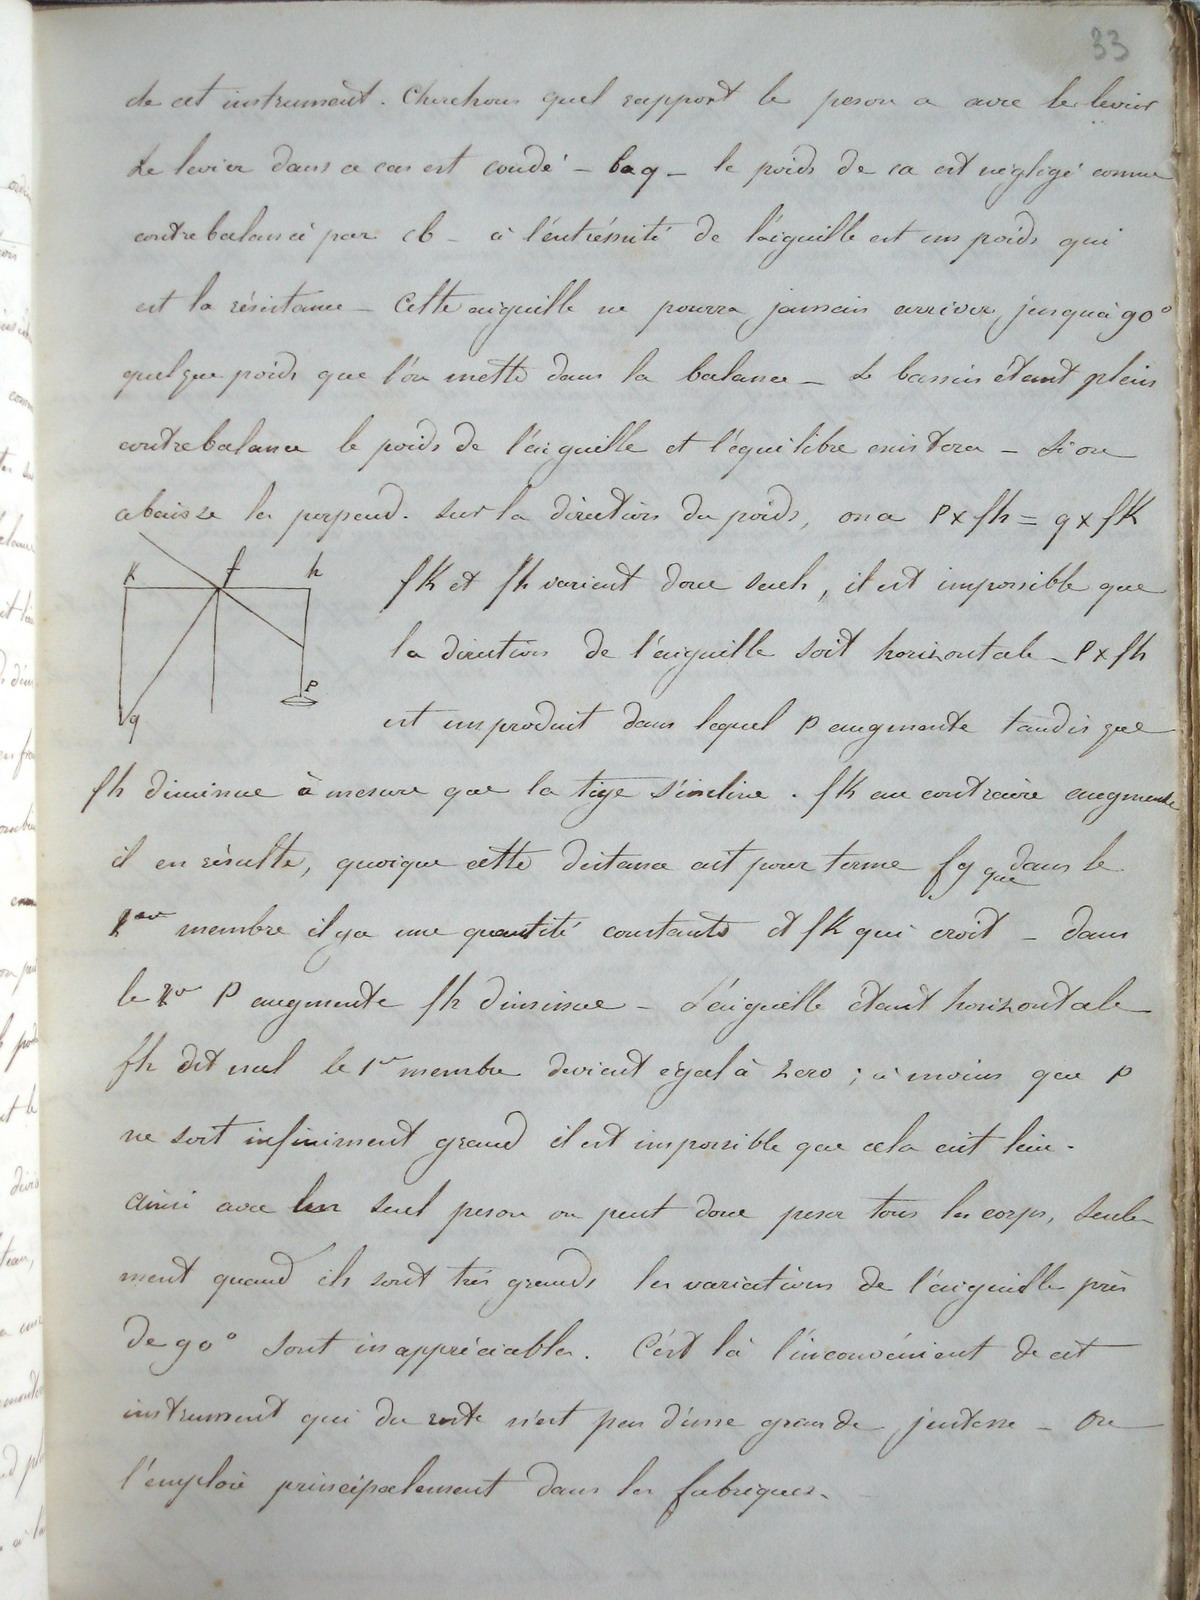 33
de cet instrument. Cherchons quel rapport le peson a avec les leviers
Le levier dans ce cas est coudé - baq - le poids de ca est négligé comme
contrebalancé par cb - à l'extrémité de l'aiguille est un poids qui
est la résistance - Cette aiguille ne pourra jamais arriver jusqu'à 90°
quelque poids que l'on mette dans la balance - Le bassin étant plein
contrebalance le poids de l'aiguille et l'équilibre existera - Si on
abaisse les perpend. sur la direction du poids, on a P x fh = q x fK
K f h
fK et fh varient donc seuls, il est impossible que
la direction de l'aiguille soit horizontale - P x fh
P
est un produit dans lequel P augmente tandis que
q
fh diminue à mesure que la tige s'incline. fK au contraire augmente
il en résulte, quoique cette distance ait pour terme fq que dans le
membre il y a une quantité constante et fK qui croît - dans
le P augmente fh diminue - L'aiguille étant horizontale
fh dt nul le 1er membre devient égal à zéro ; à moins que P
ne soit infiniment grand il est impossible que cela ait lieu.
Ainsi avec un seul peson on peut donc peser tous les corps, seule-
ment quand ils sont très grands les variations de l'aiguille près
de 90° sont inappréciables. C'est là l'inconvénient de cet
instrument qui du reste n'est pas d'une grande justesse - On
l'emploie principalement dans les fabriques.